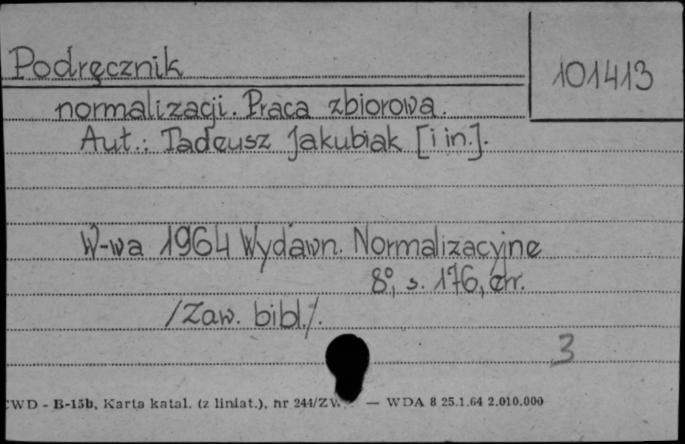 Podręcznik
101413
normalizacji. Praca zbiorowa.
Aut.: Tadeusz Jakubiak [i in.].
W-wa 1964 Wydawn. Normalizacyjne
8°, s. 176,
/Zaw. bibl./.
3
CWD - B-15b, Karta katal. (z liniat.), nr 244/ZW — WDA 8 25.1.64 2.010.000